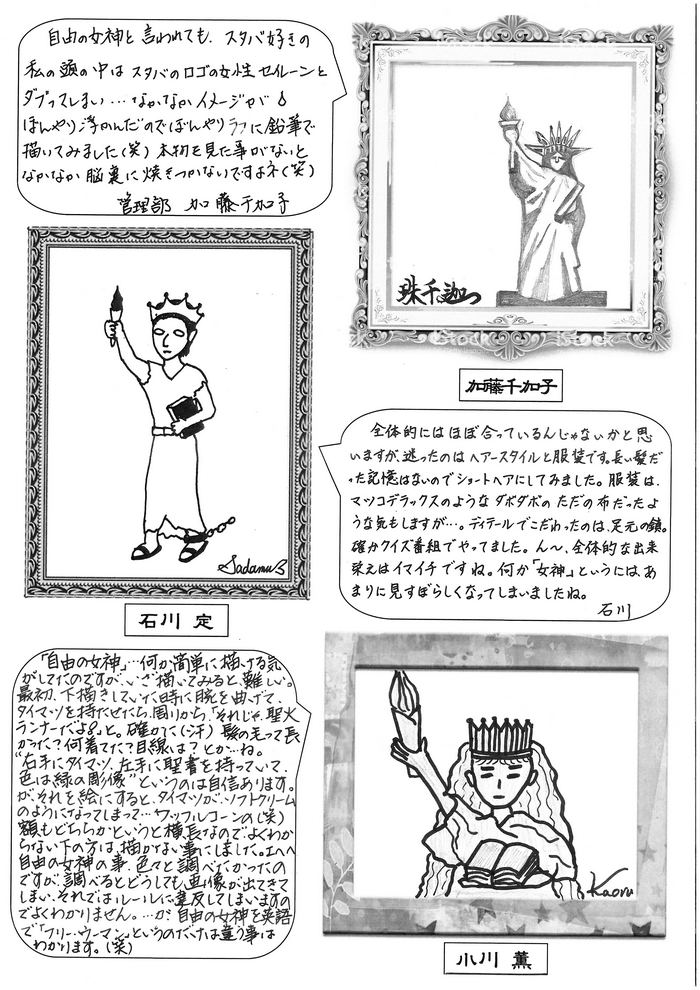 自由の女神と言われても、スタバ好きの
私の頭の中はスタバのロゴの女性セイレーンと
ダブってしまい…なかなかイメージが💧
ぼんやり浮かんだのでぼんやりラフに鉛筆で
描いてみました(笑) 本物を見た事がないと
なかなか脳裏に焼きつかないですよネ(笑)
管理部 加藤千加子
珠千迦
加藤千加子
全体的にはほぼ合っているんじゃないかと思
いますが、迷ったのはヘアースタイルと服装です。長い髪だ
った記憶はないのでショートヘアにしてみました。服装は、
マツコデラックスのようなダボダボのただの布だったよ
うな気もしますが…。ディテールでこだわったのは、足元の鎖。
確かクイズ番組でやってました。ん〜、全体的な出来
栄えはイマイチですね。何か「女神」というには、あ
まりに見すぼらしくなってしまいましたね。
石川
Sadamu
石川 定
「自由の女神」…何か簡単に描ける気
がしてたのですが、いざ描いてみると、難しい。
最初、下描きしていた時に腕を曲げて、
タイマツを持たせたら、周りから、「それじゃ、聖火
ランナーだよ」と。確かに(汗) 髪の毛って長
かった?何着てた?目線は?とか…ね。
"右手にタイマツ、左手に聖書を持っていて、
色は緑の彫像"というのは自信あります。
がそれを絵にすると、タイマツが、ソフトクリーム
のようになってしまって…ワッフルコーンの(笑)
額もどちらかというと横長なのでよくわか
らない下の方は、描かない事にしました。エヘヘ
自由の女神の事、色々と調べたかったの
ですが、調べるとどうしても、画像が出てきて
しまい、それではルールに違反してしまいますの
でよくわかりません。…が、自由の女神を英語
で「フリー・ウーマン」というのだけは違う事は
わかります。(笑)
Kaoru
小川 薫